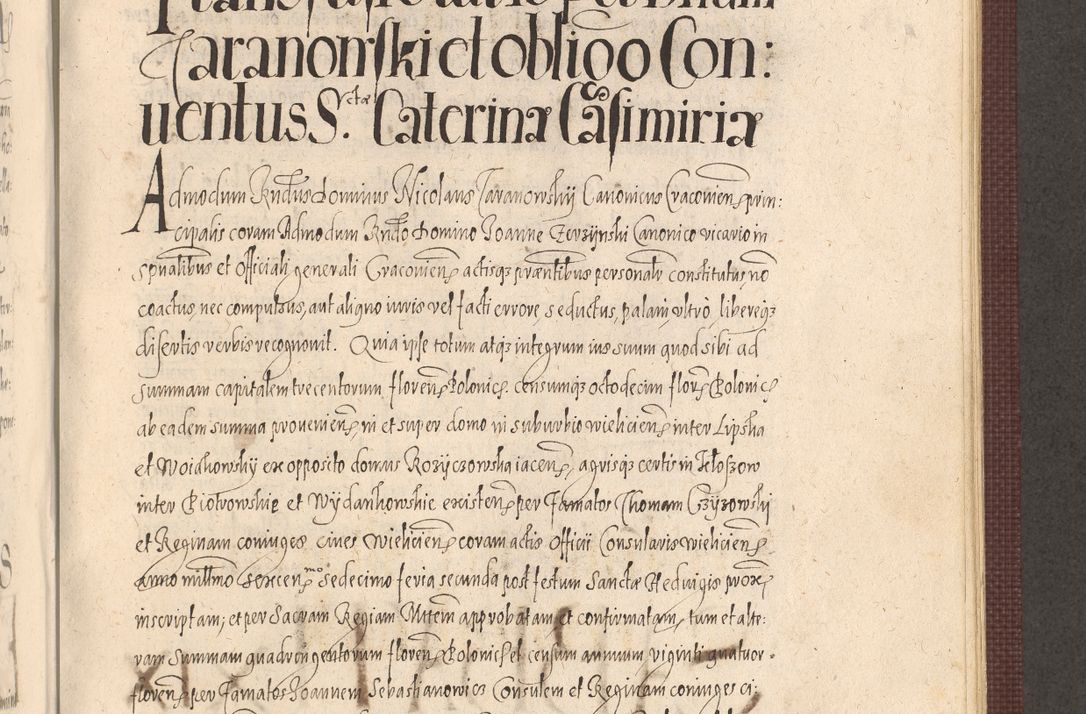 Taranowski et obligõo Con:
uentus S.ctæ Caterinæ Casimiriæ
Admodum Rndus Dominus Nicolaus Taranowskij Canonicus Cracovien prin:
cipalis coram Admodum Rndo Domino Joanne Canonico vicario in
spualibus et Officiali generali Cracovien actisqz præntibus personalr constitutus, nõ
coactus, nec compulsus, aut aligno iuris vel facti errore, seductus, palam, vltrò, libereqz
disertis verbis recognovit. Quia ipse totum atqz integrum ius suum quod sibi ad
summam capitalem trecentorum floren Polonic. censumqz octodecim floren Polonic
ab eadem summa provenien, in et super domo in suburbio wielicien inter Lipska
et Woidkowskij ex opposito domus Rozyczowska iacen, agrisqz certis in
inter Piotrowskie et Wydankowskie existen per famatos Thomam Czyzowskij
et Reginam coniuges cives Wielicien coram actis Officii Consularis wielicien
anno millmo sexcenmo sedecimo feria secunda post festum Sanctæ Hedvigis prox
inscriptam, et per Sacram Regiam Mttem approbatam et confirmatam, tum et alte:
ram Summam quadringentorum floren Polonic et censum annuum viginti quatuor
floren per famatos Joannem Sebastianowicz Consulem et Reginam coniuges ci: